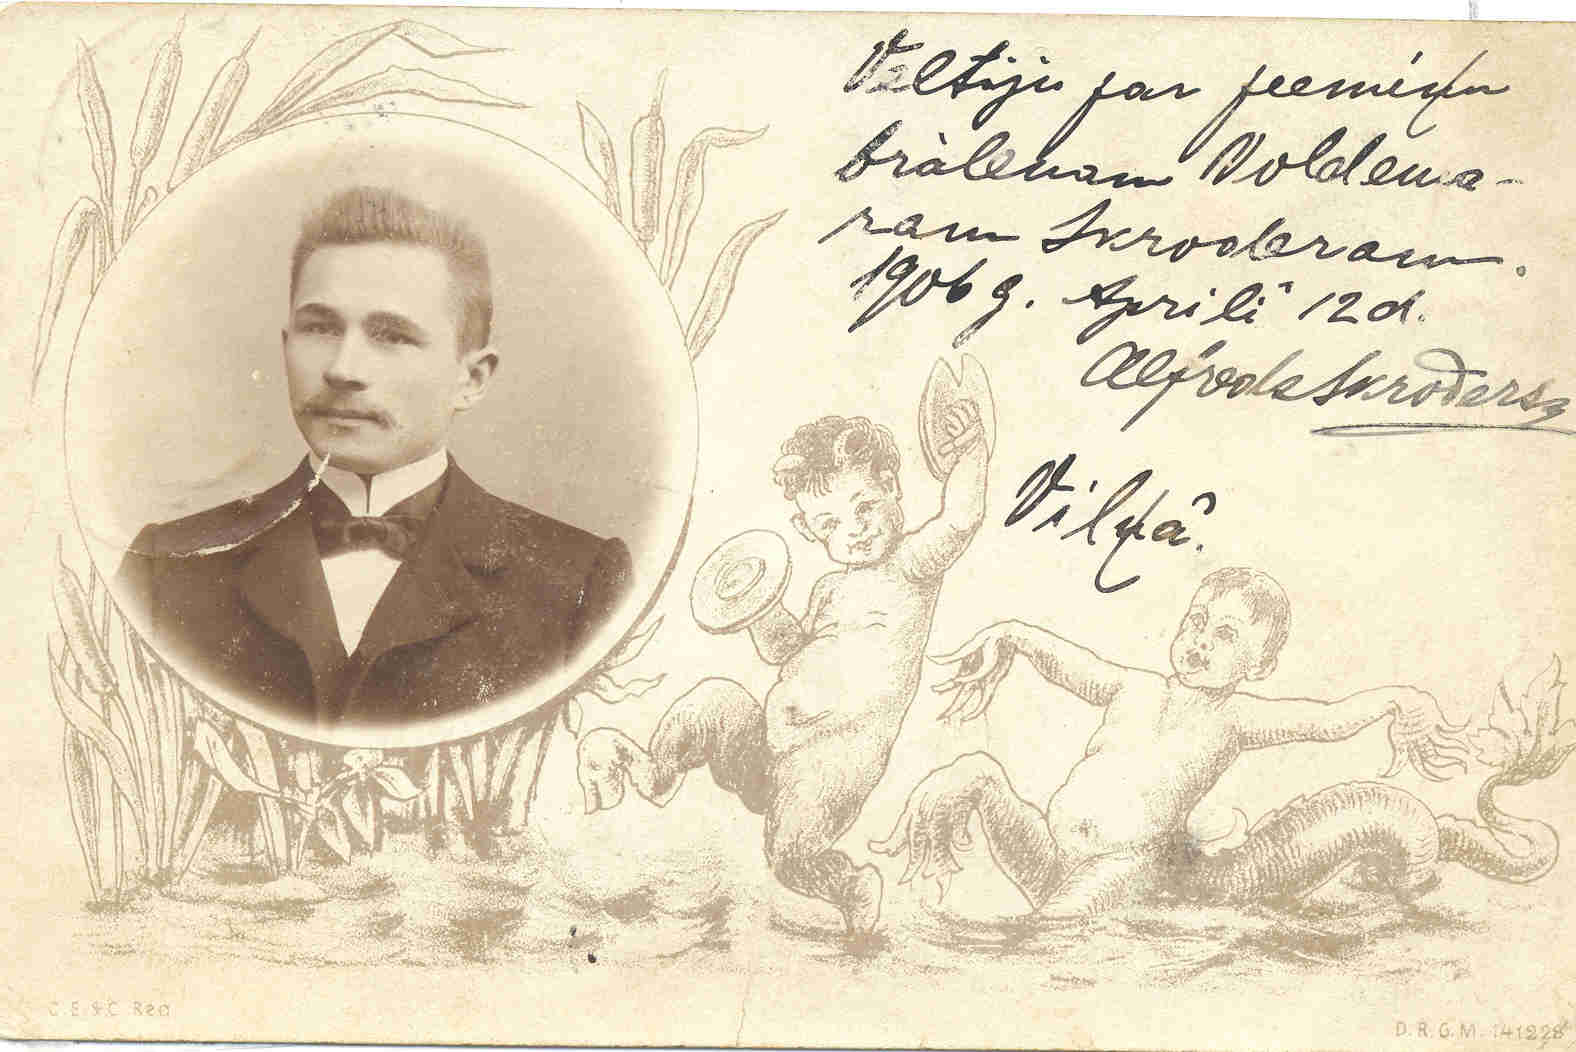 Veltiju par peemiņu
bràlenam Voldema-
ram Skroderam.
1906 g. Aprilî 12 d.
Alfreds Skroders
Viļņâ.
C. E. & C.
D. R. G. M. 141228